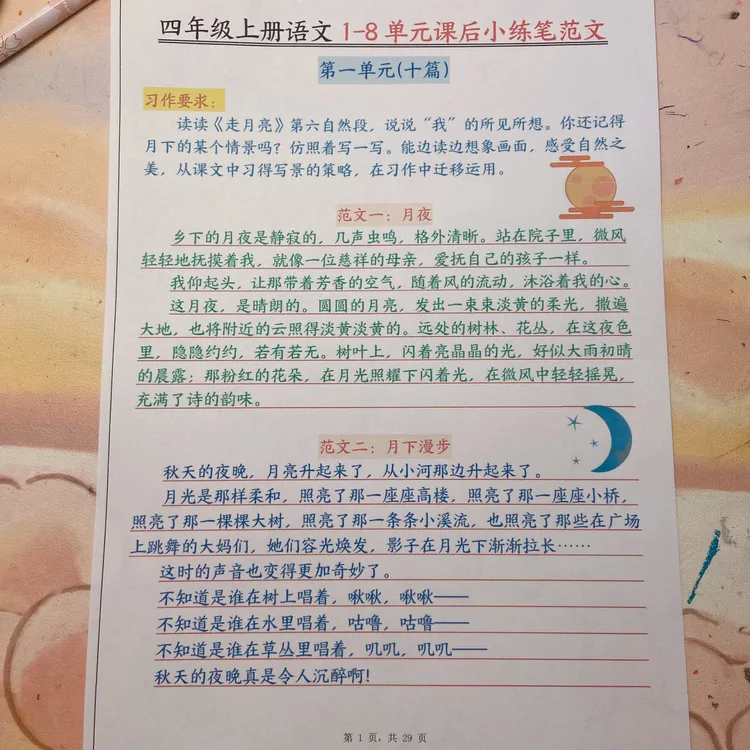 四年级上册语文1-8单元课后小练笔范文
第一单元(十篇)
习作要求：
读读《走月亮》第六自然段，说说“我”的所见所想。你还记得
月下的某个情景吗？仿照着写一写。能边读边想象画面，感受自然之
美，从课文中习得写景的策略，在习作中迁移运用。
范文一：月夜
乡下的月夜是静寂的，几声虫鸣，格外清晰。站在院子里，微风
轻轻地抚摸着我，就像一位慈祥的母亲，爱抚自己的孩子一样。
我仰起头，让那带着芳香的空气，随着风的流动，沐浴着我的心。
这月夜，是晴朗的。圆圆的月亮，发出一束束淡黄的柔光，撒遍
大地，也将附近的云照得淡黄淡黄的。远处的树林、花丛，在这夜色
里，隐隐约约，若有若无。树叶上，闪着亮晶晶的光，好似大雨初晴
的晨露；那粉红的花朵，在月光照耀下闪着光，在微风中轻轻摇晃，
充满了诗的韵味。
范文二：月下漫步
秋天的夜晚，月亮升起来了，从小河那边升起来了。
月光是那样柔和，照亮了那一座座高楼，照亮了那一座座小桥，
照亮了那一棵棵大树，照亮了那一条条小溪流，也照亮了那些在广场
上跳舞的大妈们，她们容光焕发，影子在月光下渐渐拉长……
这时的声音也变得更加奇妙了。
不知道是谁在树上唱着，啾啾，啾啾——
不知道是谁在水里唱着，咕噜，咕噜——
不知道是谁在草丛里唱着，叽叽，叽叽——
秋天的夜晚真是令人沉醉啊！
第 1 页，共 29 页